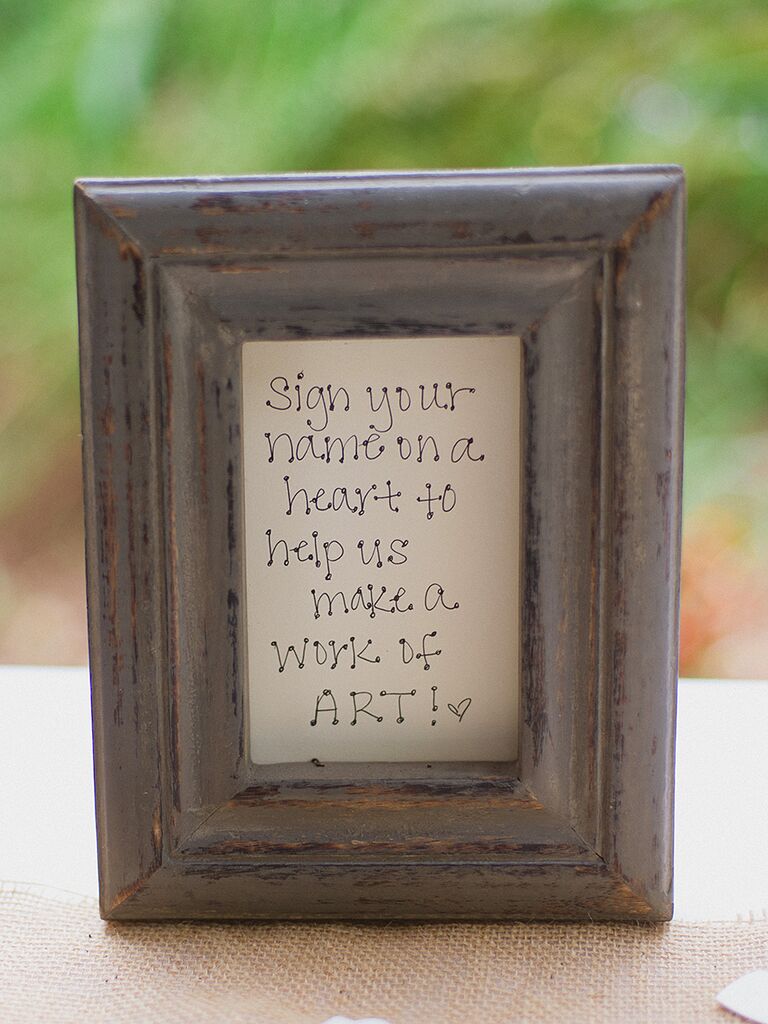 Sign your
name on a
heart to
help us
make a
work of
ART!♡